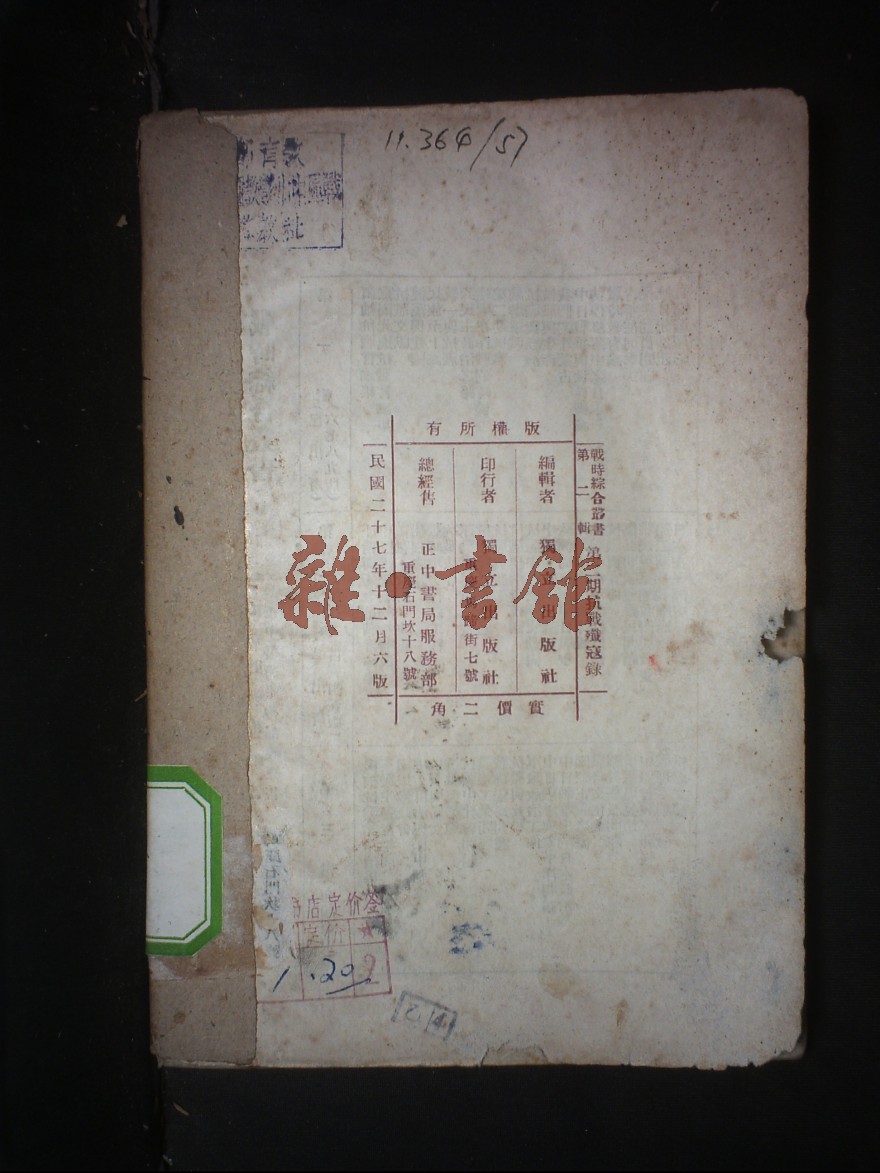 11.364/57
有所權版
戰時綜合叢書
第二輯
第二期抗戰殲寇錄
編輯者 獨立出版社
印行者 獨立出版社
街七號
總經售 正中書局服務部
重慶石門坎十八號
民國二十七年十二月六版
角二價實
雜·書館
店定价签
定价
1.20